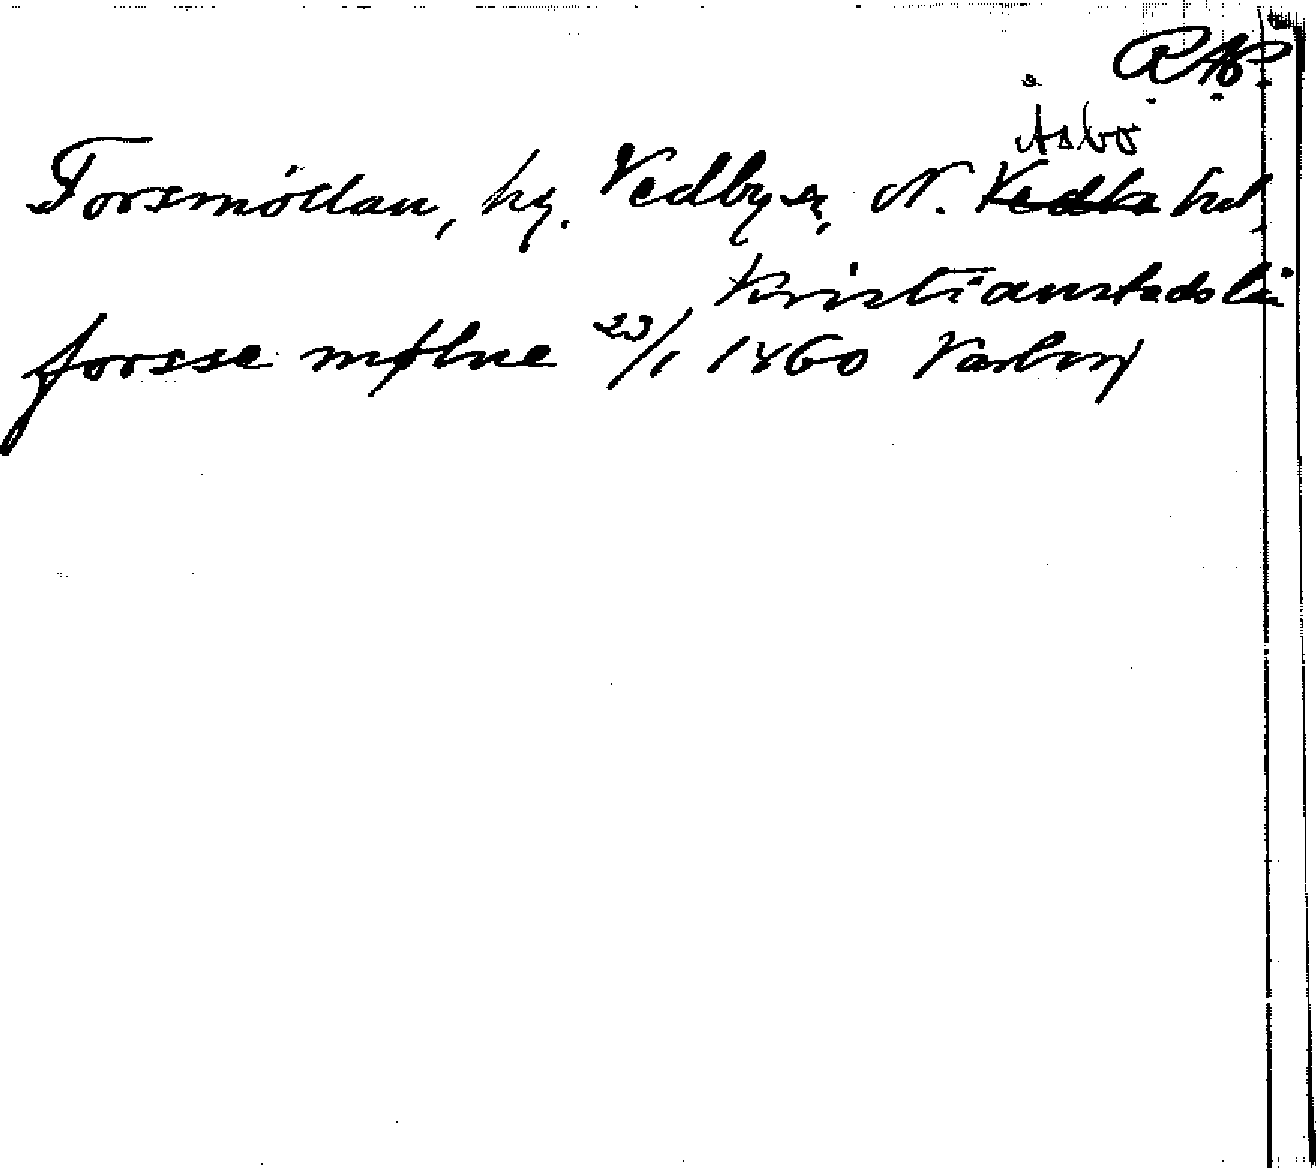 RAP.
Åsbo
Forsmöllan, hg. Vedby sn, N. Vedbo hd,
Kristianstads län
forsse mølne 23/1 1460 Varberg